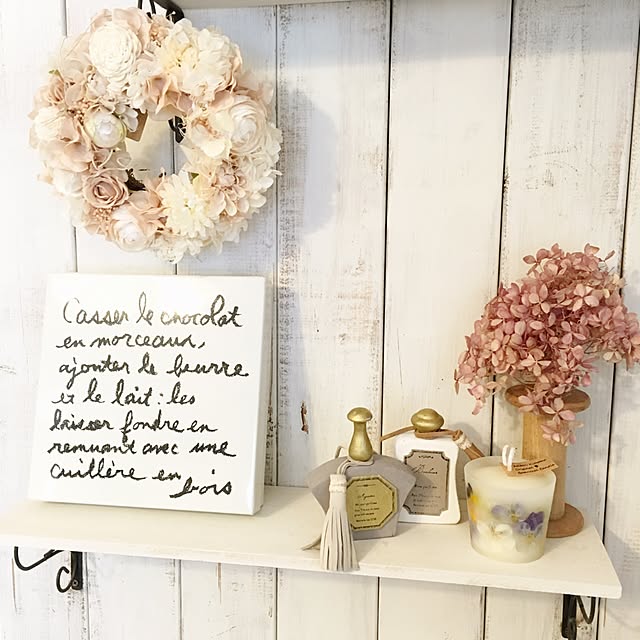 Casser le chocolat
en morceaux,
ajouter le beurre
et le lait: les
laisser fondre en
remuant avec une
cuillère en
bois